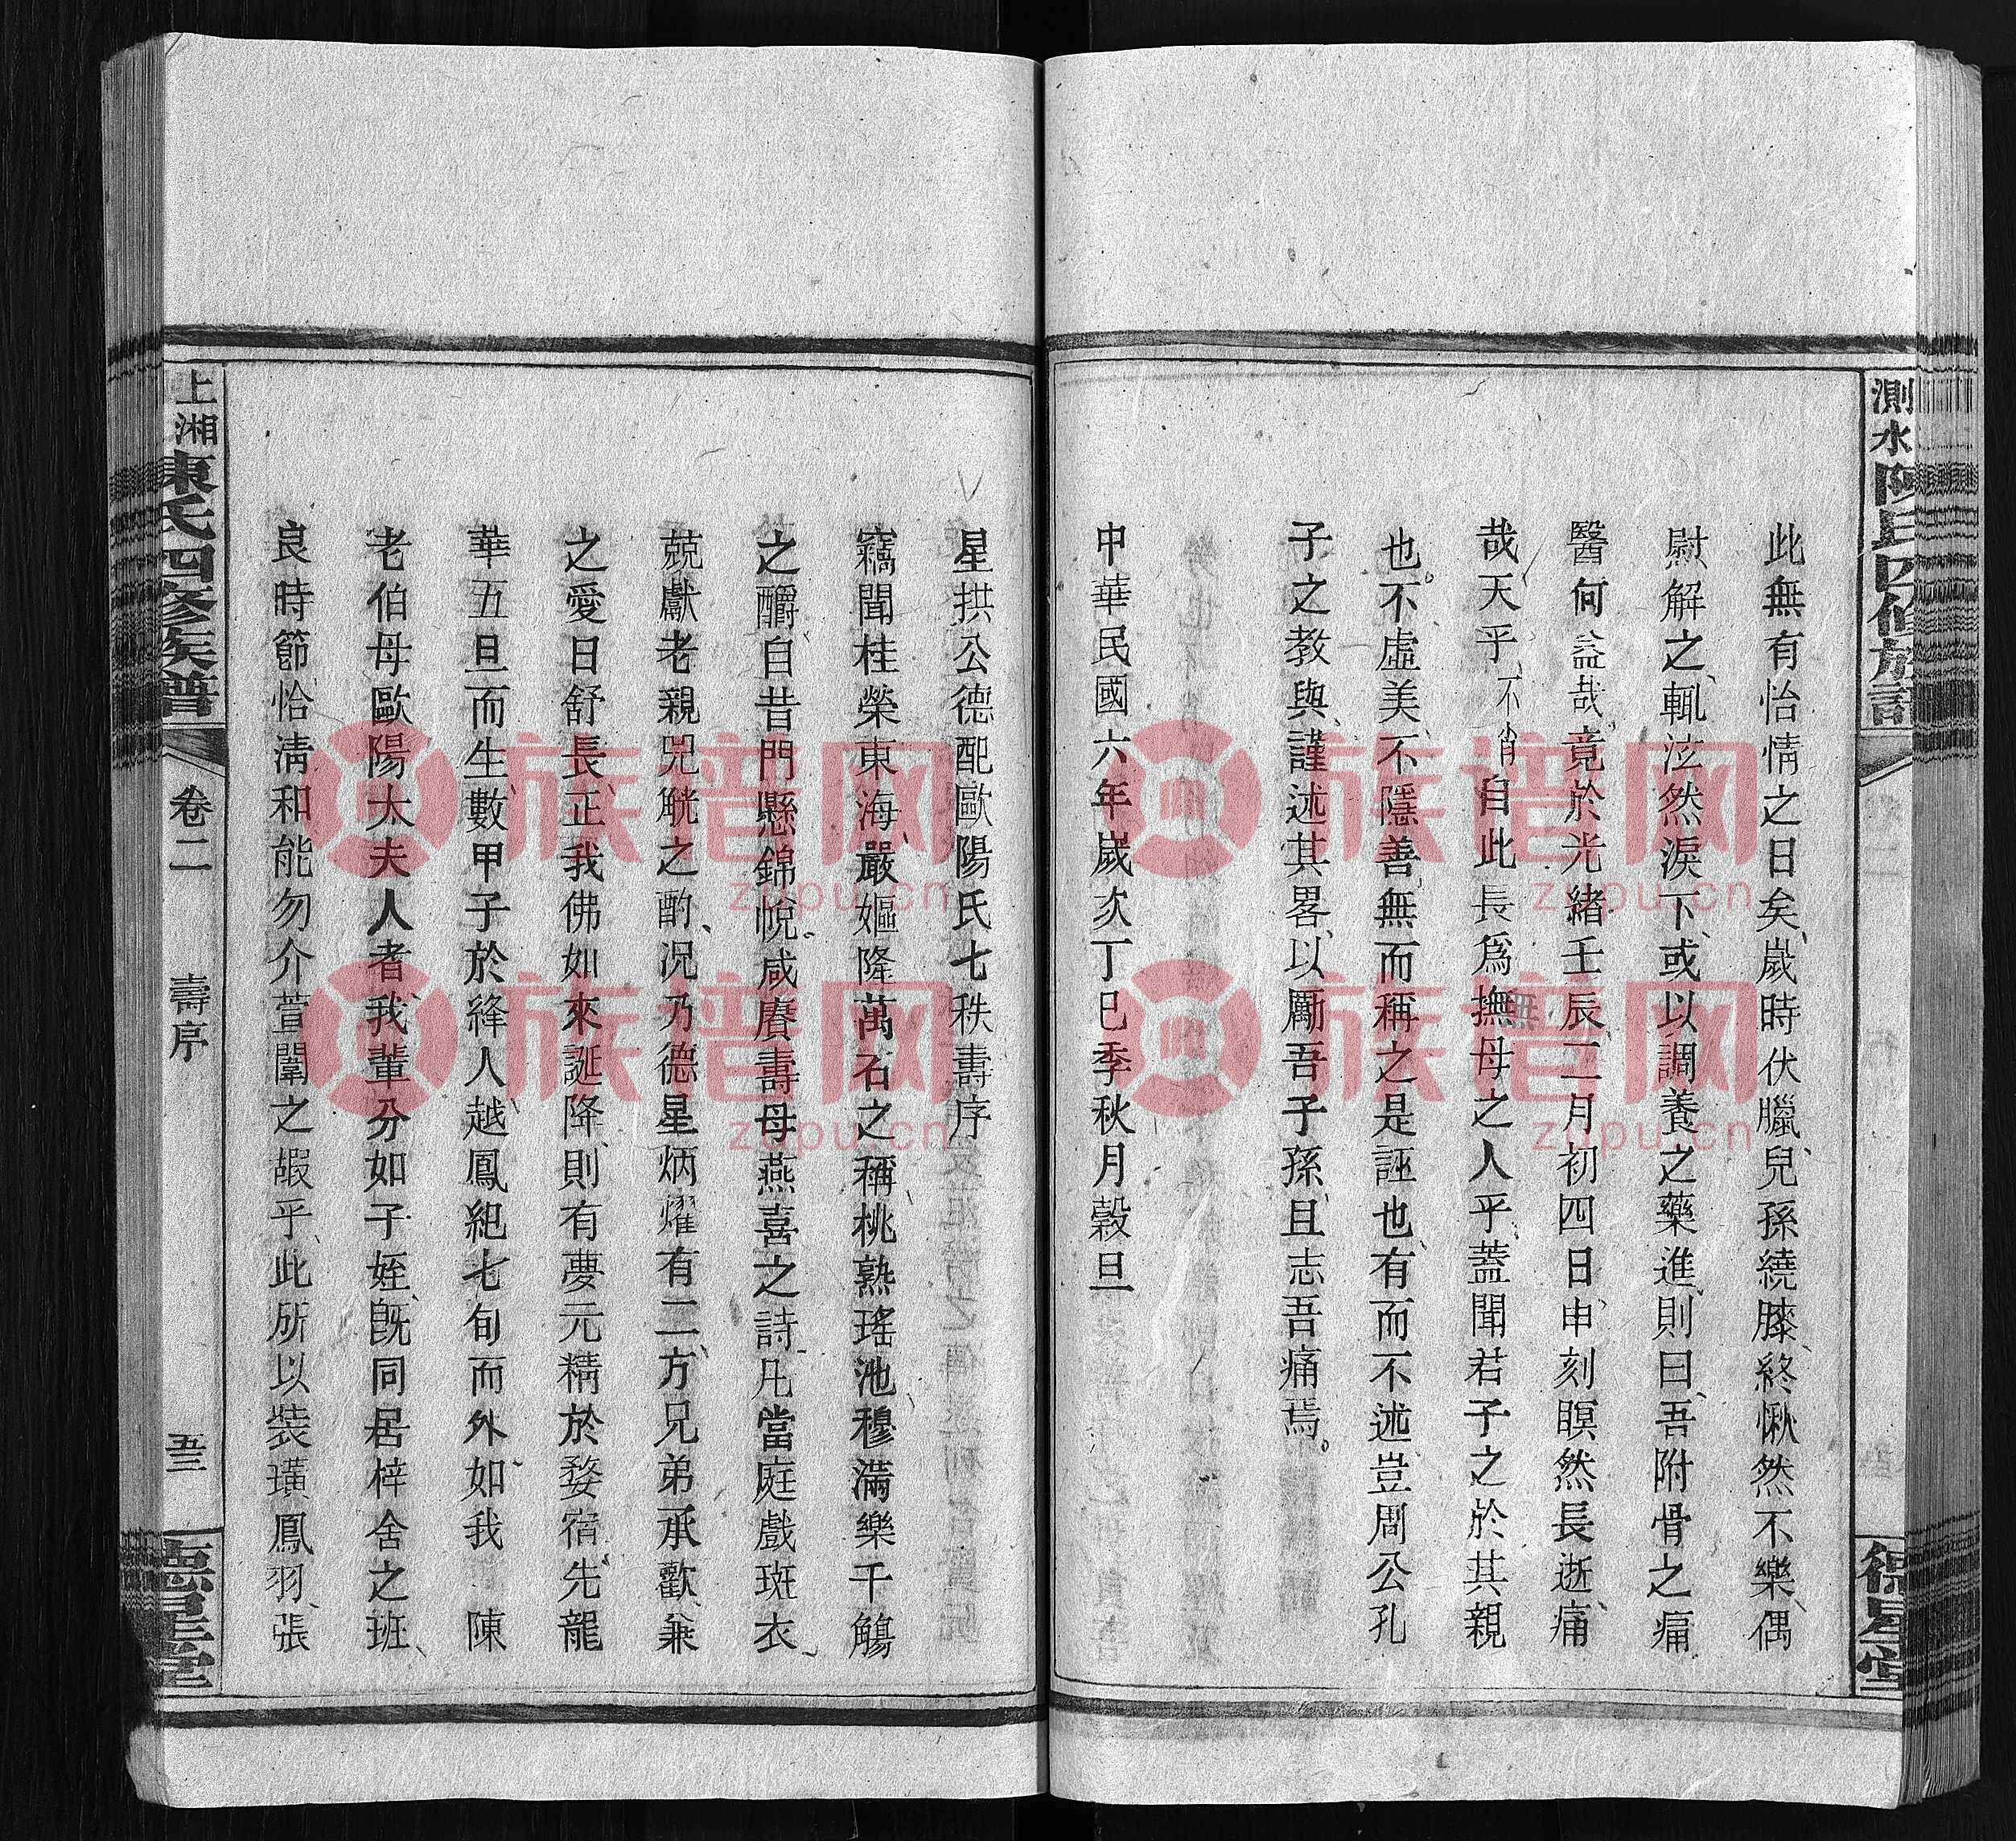 測水陳氏四修族譜
此無有怡情之日矣歲時伏臘兒孫繞膝終愀然不樂偶
尉解之輒泫然淚下或以調養之藥進則曰吾附骨之痛
醫何益哉竟於光緒壬辰二月初四日申刻瞑然長逝痛
哉天乎不肖自此長為無撫母之人乎蓋聞君子之於其親
也不虛美不隱善無而稱之是誣也有而不述豈周公孔
子之教與謹述其畧以勵吾子孫且志吾痛焉
中華民國六年歲次丁巳季秋月穀旦
德星堂
星拱公德配歐陽氏七秩壽序
竊聞桂榮東海嚴嫗隆萬石之稱桃熟瑤池穆滿樂千觴
之釂自昔門懸錦帨咸賡壽母燕喜之詩凡當庭戲斑衣
兢獻老親兕觥之酌況乃德星炳燿有二方兄弟承歡兼
之愛日舒長正我佛如來誕降則有夢元精於婺宿先龍
華五旦而生數甲子於絳人越鳳紀七旬而外如我 陳
老伯母歐陽太夫人者我輩分如子姪既同居梓舍之班
良時節恰淸和能勿介萱闈之嘏乎此所以裝璜鳳羽張
上湘陳氏四修族譜
卷二
壽序
五三
德星堂
族譜网
zupu.cn
族譜网
zupu.cn
族譜网
zupu.cn
族譜网
zupu.cn